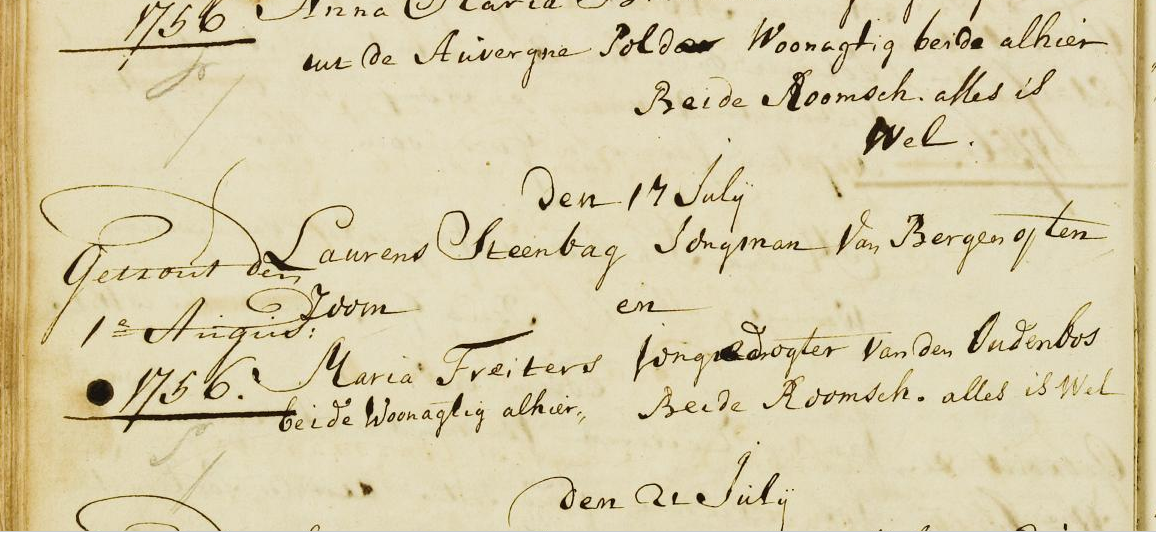 1756 Anna Maria
uit de Auvergne Polder Woonagtig beide alhier
Beide Roomsch. alles is
Wel.
den 17 Julÿ
Getrout den Laurens Steenbag Jongman Van Bergen op ten
1e August: Zoom en
1756. Maria Freiters jonge Dogter van den Oudenbos
beide Woonagtig alhier, Beide Roomsch. alles is Wel
den 21 Julÿ